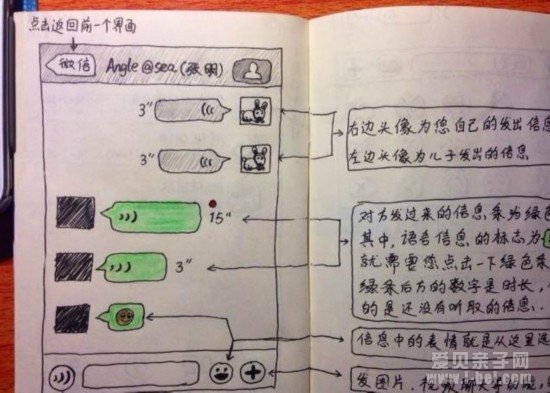 点击返回前一个界面
微信
Angle@sea(张明)
3"
3"
15"
3"
右边头像为您自己的发出信息
左边头像为儿子发出的信息
对方发过来的信息条为绿色
其中,语音信息的标志为
就需要您点击一下绿色条
绿条后方的数字是时长,
的是还没有听取的信息.
信息中的表情就是从这里选
发图片、视频聊天等功能,
爱贝亲子网
i-bei.com